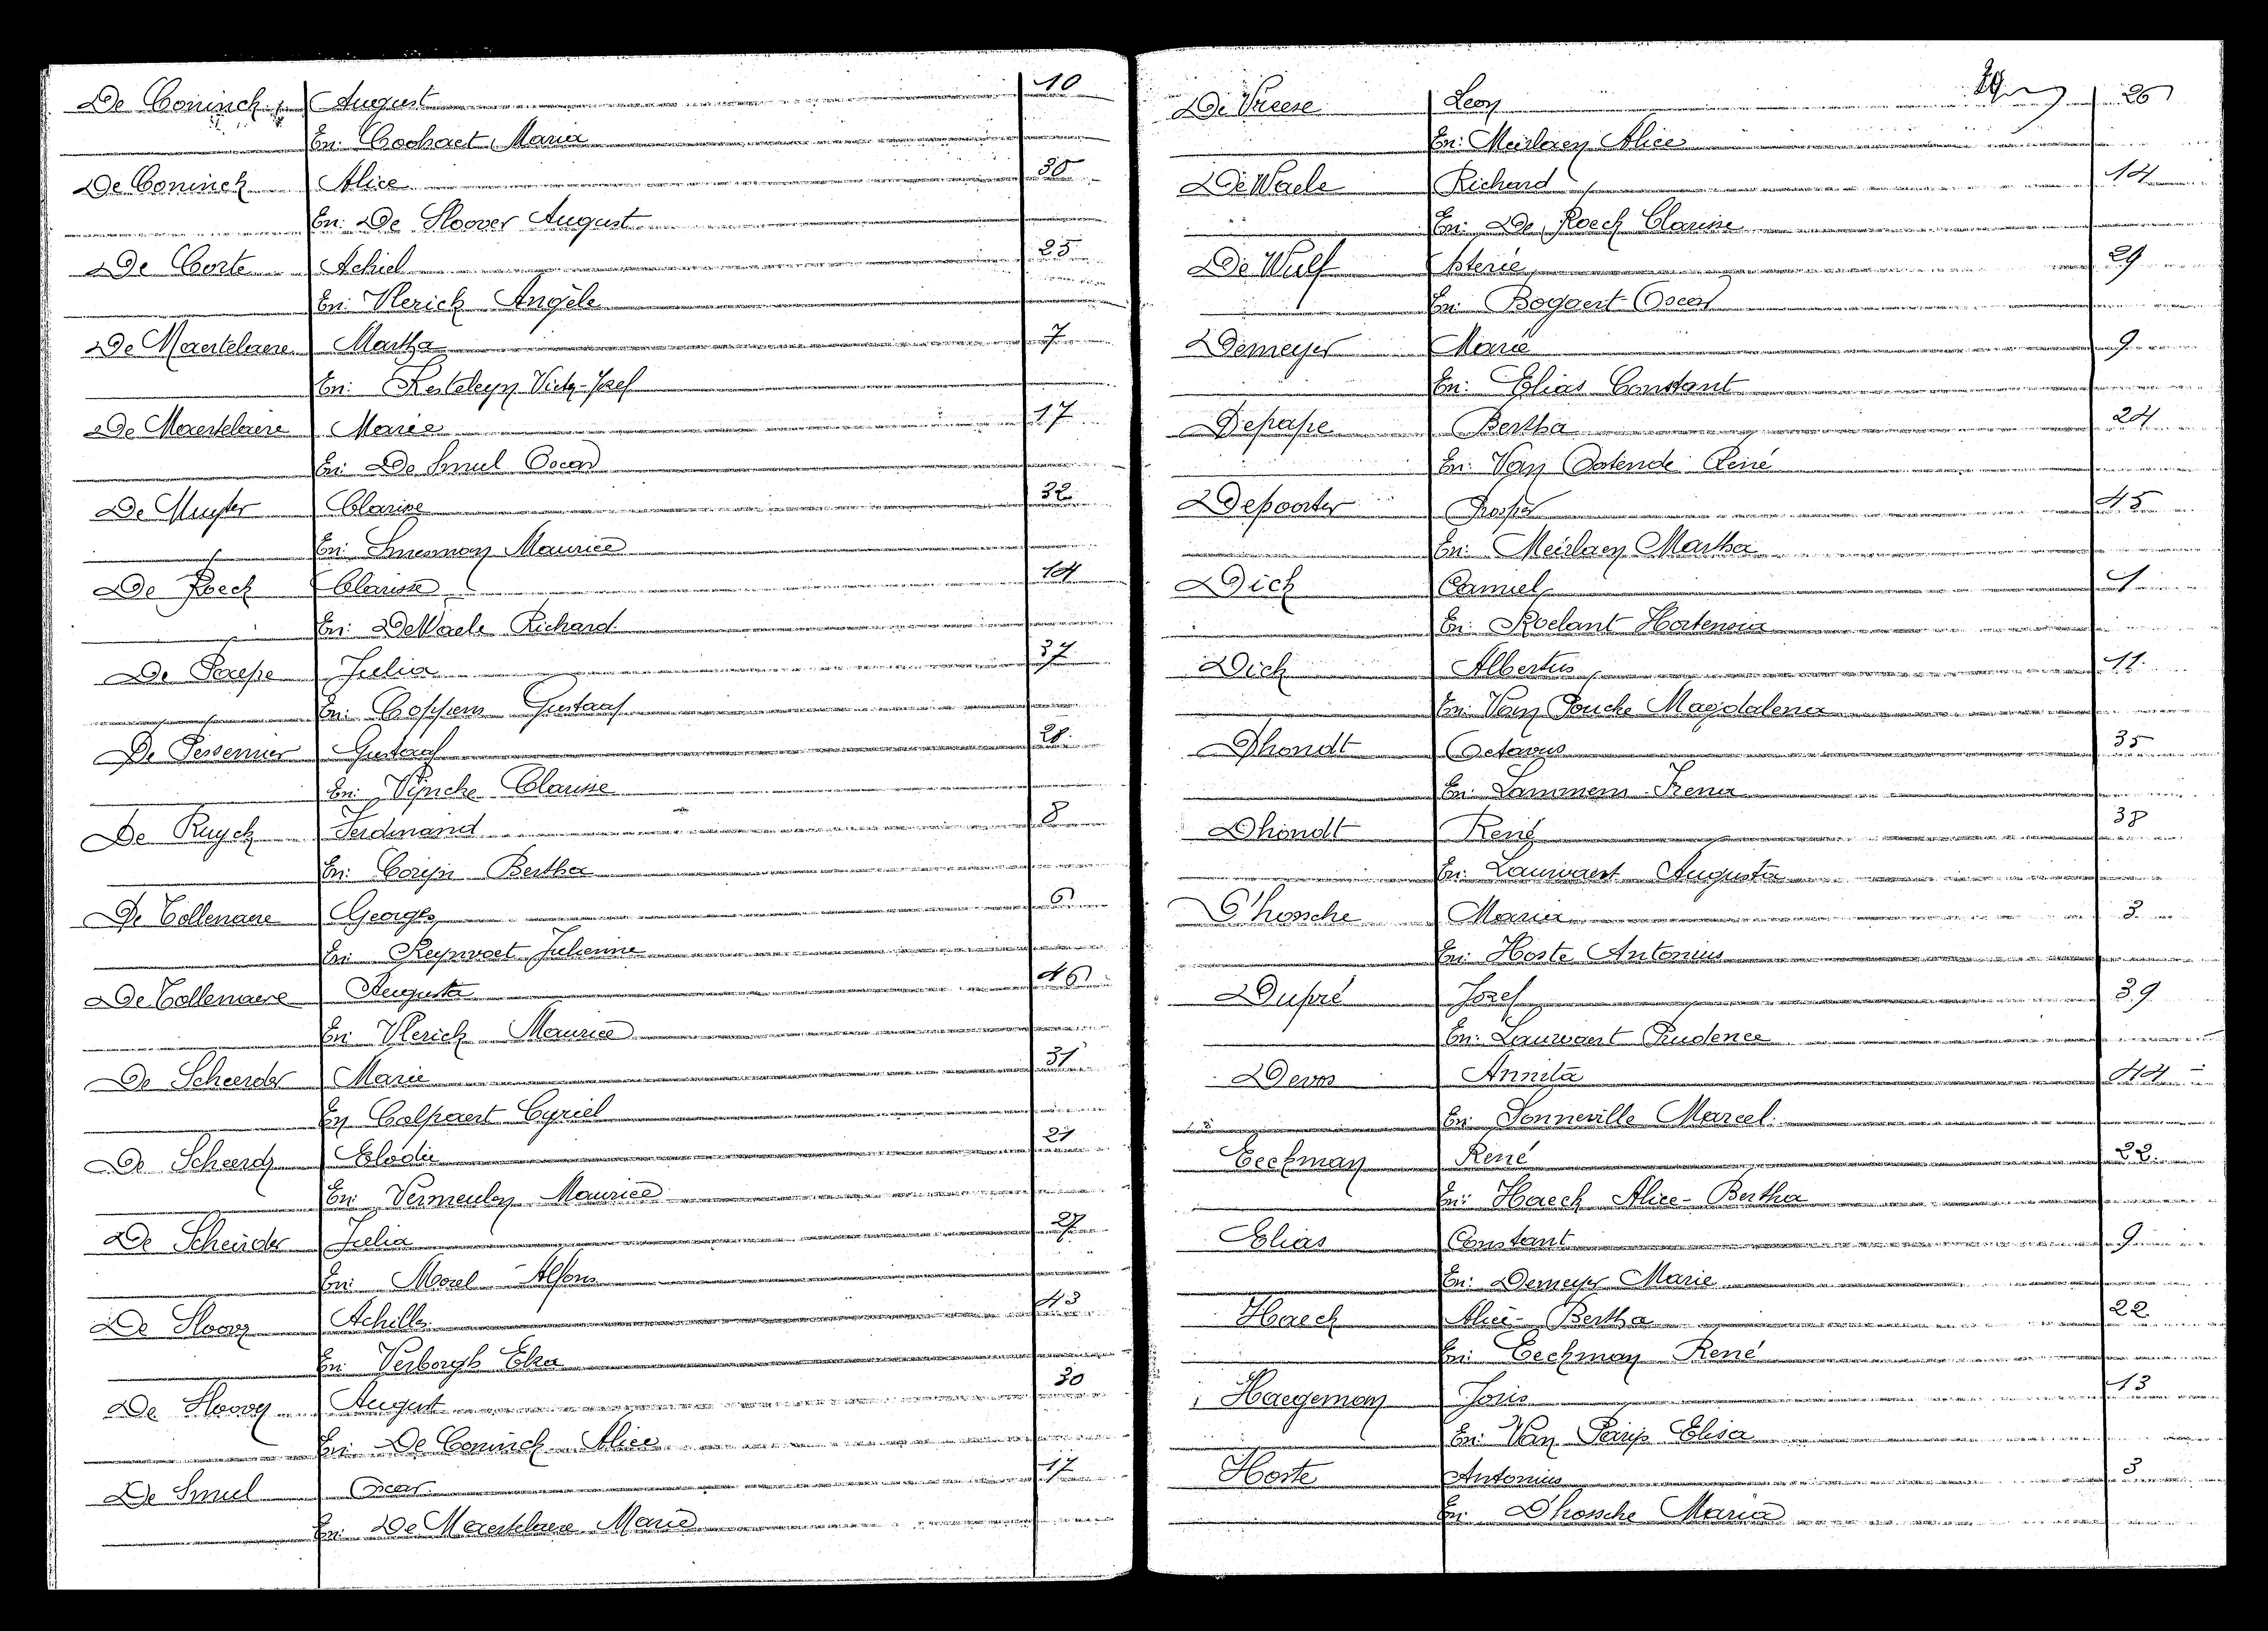 De Coninck August 10
En: Coohaet Maria
De Coninck Alice 30
En: De Sloover August
De Corte Achiel 25
En: Vlerick Angèle
De Maertelaere Martha 7
En: Kesteleyn Victor-Jozef
De Maertelaere Marie 17
En: De Smul Oscar
De Muyter Clarisse 32
En: Snoeman Maurice
De Roeck Clarisse 14
En: De Waele Richard
De Paepe Julia 37
En: Coppens Gustaaf
De Pessemier Gustaaf 28
En: Vijncke Clarisse
De Ruyck Ferdinand 8
En: Corijn Bertha
De Tollenaere Georges 6
En: Reynvoet Julienne
De Tollenaere Augusta 46
En: Vlerick Maurice
De Scheerder Marie 31
En Colpaert Cyriel
De Scheerder Elodie 21
En: Vermeulen Maurice
De Scheirder Julia 27
En: Morel Alfons
De Sloover Achilles 43
En: Verborgh Elza
De Sloover August 30
En: De Coninck Alice
De Smul Oscar 17
En: De Maertelaere Marie
De Vreese Leon 26
En: Meirlaen Alice
De Waele Richard 14
En: De Roeck Clarisse
De Wulf Asterie 29
En: Bogaert Oscar
Demeyer Marie 9
En: Elias Constant
Depape Bertha 24
En: Van Oostende René
Depoorter Prosper 45
En: Meirlaen Martha
Dick Camiel 1
En: Roelant Hortensia
Dick Albertus 11
En: Van Poucke Magdalena
Dhondt Octavus 35
En: Lammens Irena
Dhondt René 38
En: Lauwaert Augusta
D'hossche Maria 3
En: Hoste Antonius
Dupré Jozef 39
En: Lauwaert Prudence
Devos Annita 44
En: Sonneville Marcel
Eeckman René 22
En: Haeck Alice-Bertha
Elias Constant 9
En: Demeyer Marie
Haeck Alice-Bertha 22
En: Eeckman René
Haegeman Joris 13
En: Van Parijs Elisa
Hoste Antonius 3
En: D'hossche Maria